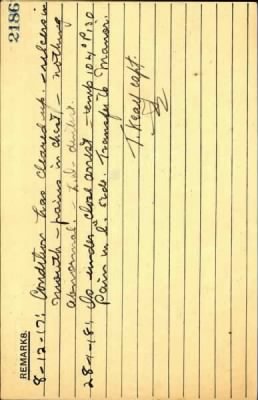 2186
REMARKS.
8-12-17: Condition has cleared up. - ulcers in
mouth - pains in chest - nothing
abnormal. dentist.
28-1-18: Is under close arrest - temp 104° P. 130
Pain in L. side. Transfer to Manor.
T. Keay Capt.